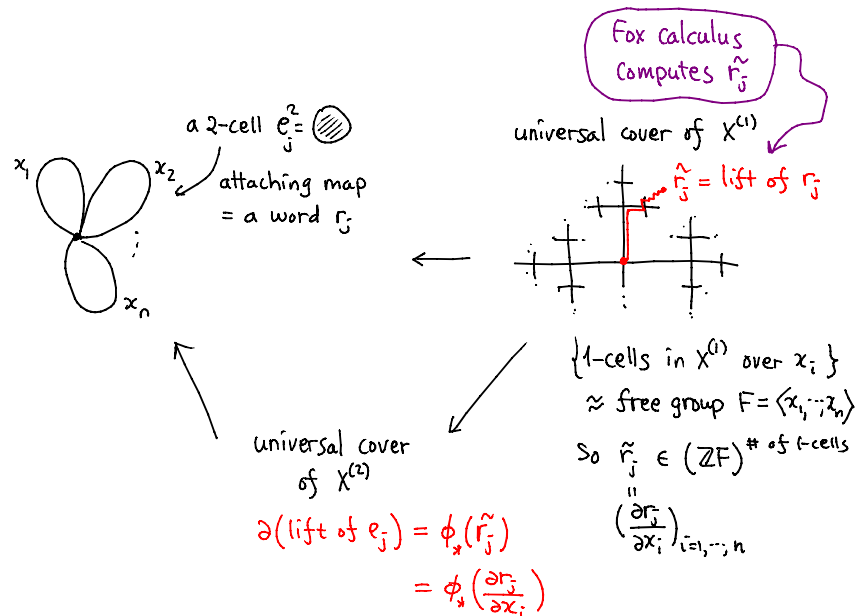 Fox calculus
computes r̃_j
a 2-cell e²_j =
attaching map
= a word r_j
x_1
x_2
x_n
universal cover of X^(1)
r̃_j = lift of r_j
{1-cells in X^(1) over x_i}
≈ free group F = ⟨x_1,…,x_n⟩
So r̃_j ∈ (ℤF)^# of 1-cells
"
(∂r_j/∂x_i)_i=1,…,n
universal cover
of X^(2)
∂(lift of e_j) = ϕ_*(r̃_j)
= ϕ_*(∂r_j/∂x_i)